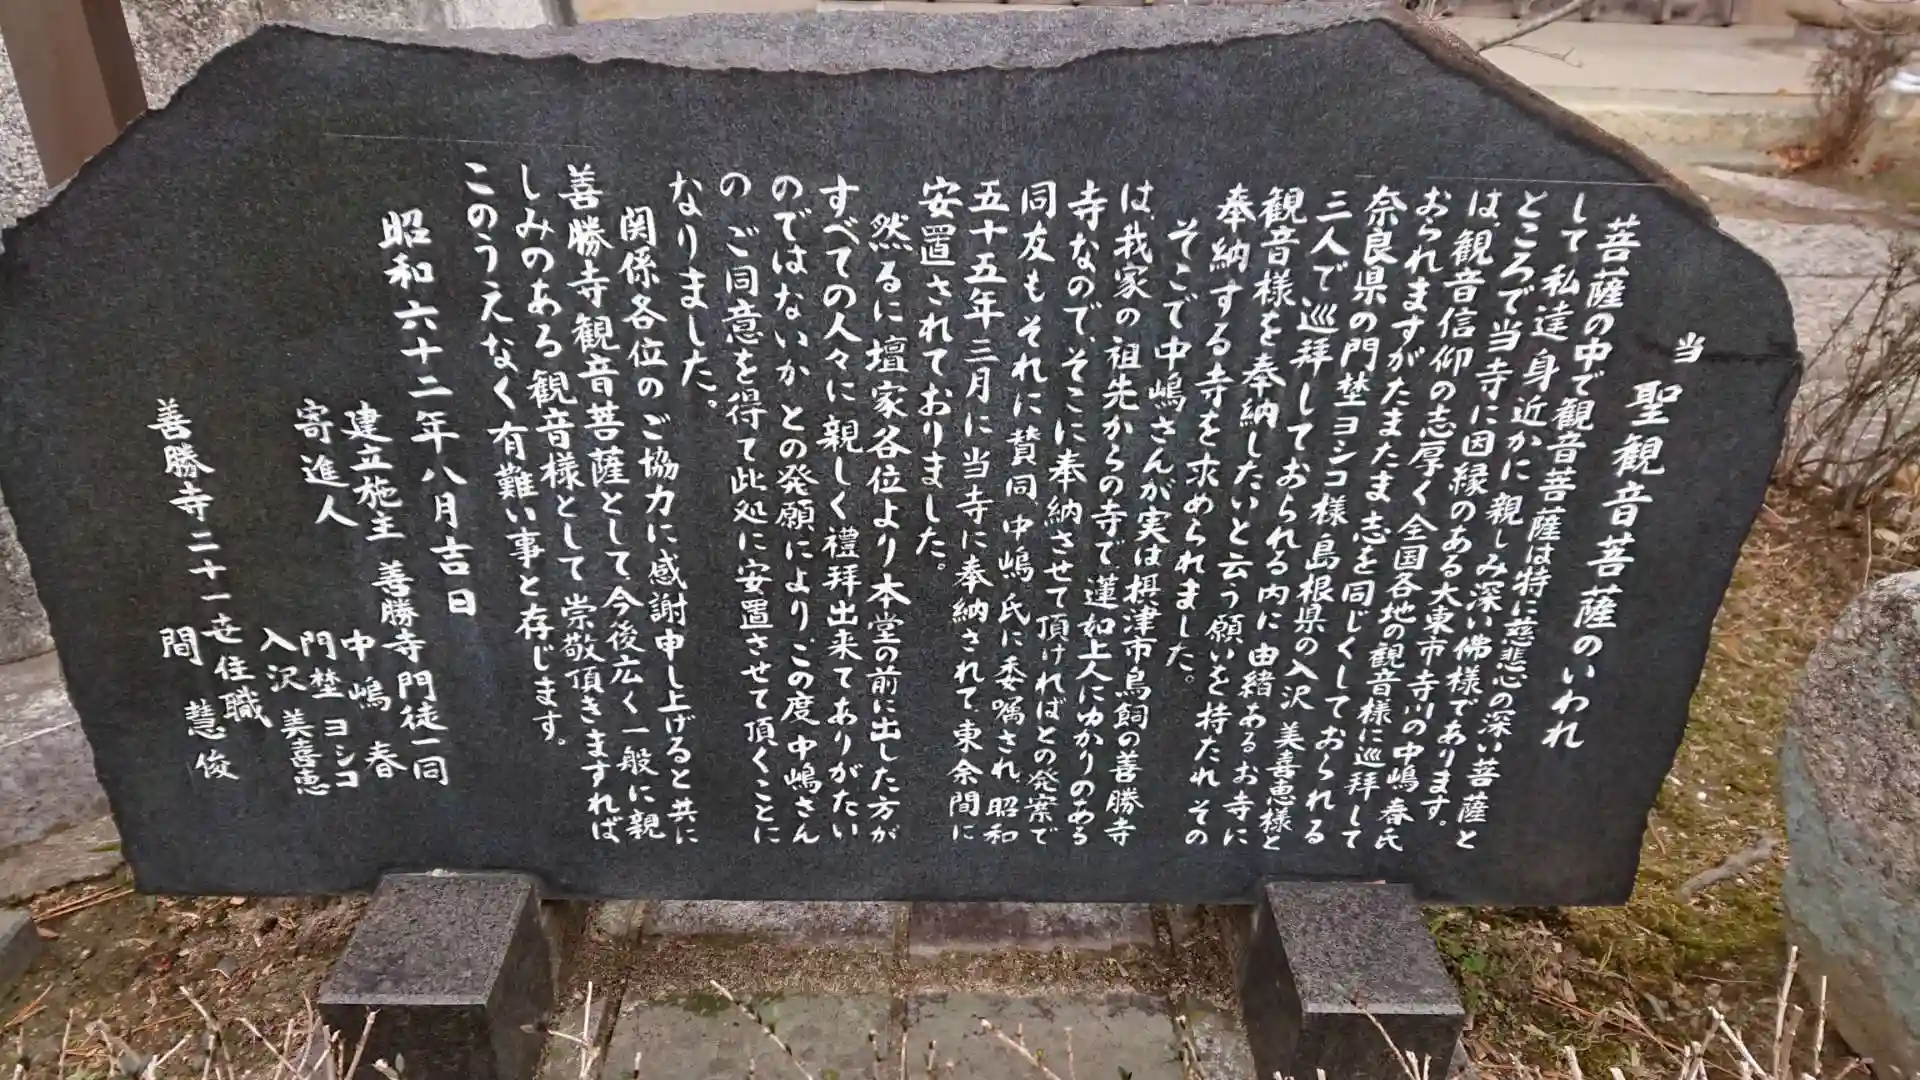 当 聖観音菩薩のいわれ
菩薩の中で観音菩薩は特に慈悲の深い菩薩と
して私達身近かに親しみ深い佛様であります。
ところで当寺に因縁のある大東市寺川の中嶋春氏
は、観音信仰の志厚く全国各地の観音様に巡拝して
おられますがたまたま志を同じくしておられる
奈良県の門埜ヨシコ様島根県の入沢 美喜恵様と
三人で巡拝しておられる内に由緒あるお寺に
観音様を奉納したいと云う願いを持たれその
奉納する寺を求められました。
そこで中嶋さんが実は摂津市鳥飼の善勝寺
は、我家の祖先からの寺で蓮如上人にゆかりのある
寺なので、そこに奉納させて頂ければとの発案で
同友もそれに賛同、中嶋氏に委嘱され、昭和
五十五年三月に当寺に奉納されて、東余間に
安置されておりました。
然るに壇家各位より本堂の前に出した方が
すべての人々に親しく禮拝出来てありがたい
のではないかとの発願により、この度、中嶋さん
のご同意を得て此処に安置させて頂くことに
なりました。
関係各位のご協力に感謝申し上げると共に
善勝寺観音菩薩として、今後広く一般に親
しみのある観音様として崇敬頂きますれば
このうえなく有難い事と存じます。
昭和六十二年八月吉日
建立施主 善勝寺門徒一同
寄進人 中嶋 春
門埜 ヨシコ
入沢 美喜恵
善勝寺二十一世住職
間 慧俊